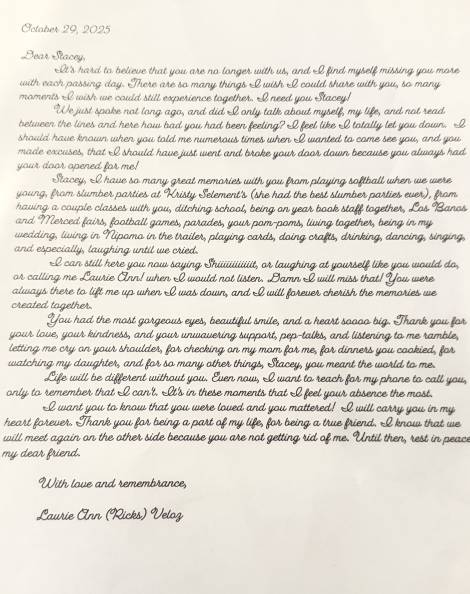 October 29, 2025
Dear Stacey,
It's hard to believe that you are no longer with us, and I find myself missing you more
with each passing day. There are so many things I wish I could share with you, so many
moments I wish we could still experience together. I need you Stacey!
We just spoke not long ago, and did I only talk about myself, my life, and not read
between the lines and here how bad you had been feeling? I feel like I totally let you down. I
should have known when you told me numerous times when I wanted to come see you, and you
made excuses, that I should have just went and broke your door down because you always had
your door opened for me!
Stacey, I have so many great memories with you from playing softball when we were
young, from slumber parties at Kristy Selement's (she had the best slumber parties ever), from
having a couple classes with you, ditching school, being on year book staff together, Los Banos
and Merced fairs, football games, parades, your pom-poms, living together, being in my
wedding, living in Nipomo in the trailer, playing cards, doing crafts, drinking, dancing, singing,
and especially, laughing until we cried.
I can still here you now saying Shiiiiiiiiiiit, or laughing at yourself like you would do,
or calling me Laurie Ann! when I would not listen. Damn I will miss that! You were
always there to lift me up when I was down, and I will forever cherish the memories we
created together.
You had the most gorgeous eyes, beautiful smile, and a heart soooo big. Thank you for
your love, your kindness, and your unwavering support, pep-talks, and listening to me ramble,
letting me cry on your shoulder, for checking on my mom for me, for dinners you cookied, for
watching my daughter, and for so many other things, Stacey, you meant the world to me.
Life will be different without you. Even now, I want to reach for my phone to call you,
only to remember that I can't. It's in these moments that I feel your absence the most.
I want you to know that you were loved and you mattered! I will carry you in my
heart forever. Thank you for being a part of my life, for being a true friend. I know that we
will meet again on the other side because you are not getting rid of me. Until then, rest in peace
my dear friend.
With love and remembrance,
Laurie Ann (Ricks) Veloz